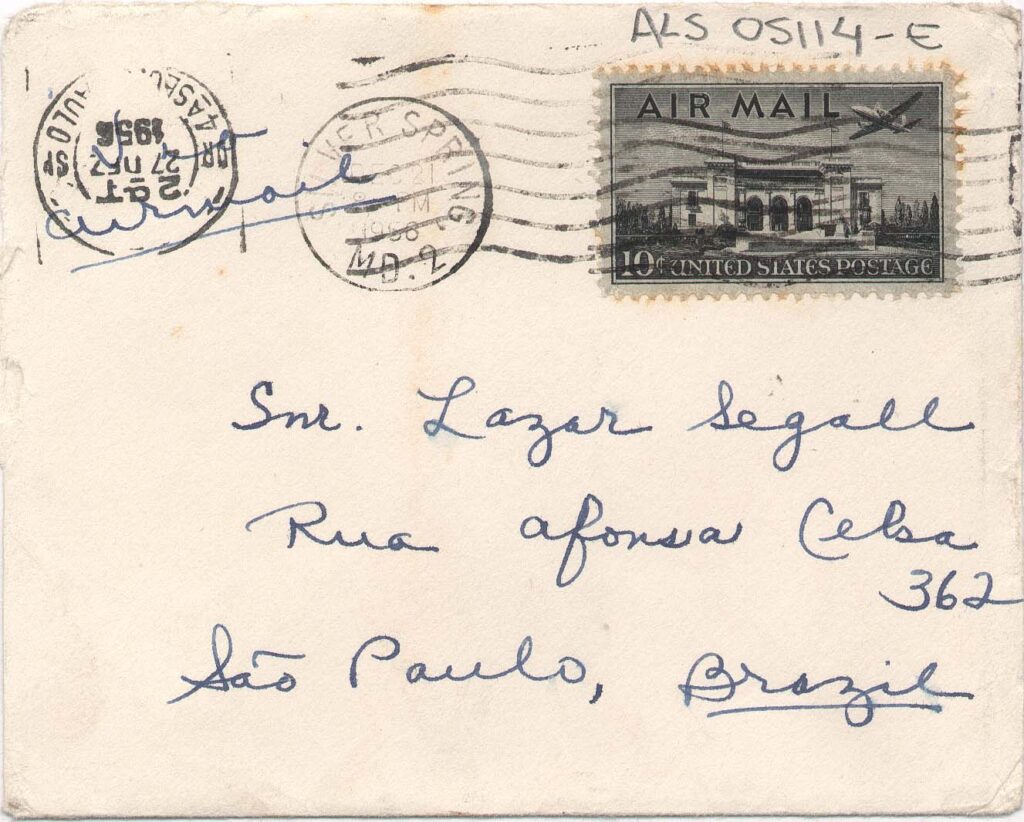 ALS 05114-E
AIR MAIL
10¢ UNITED STATES POSTAGE
SILVER SPRING
21
PM
1956
MD. 2
SP
27 DEZ
1956
airmail
Snr. Lazar Segall
Rua Afonsa Celsa
362
São Paulo, Brazil